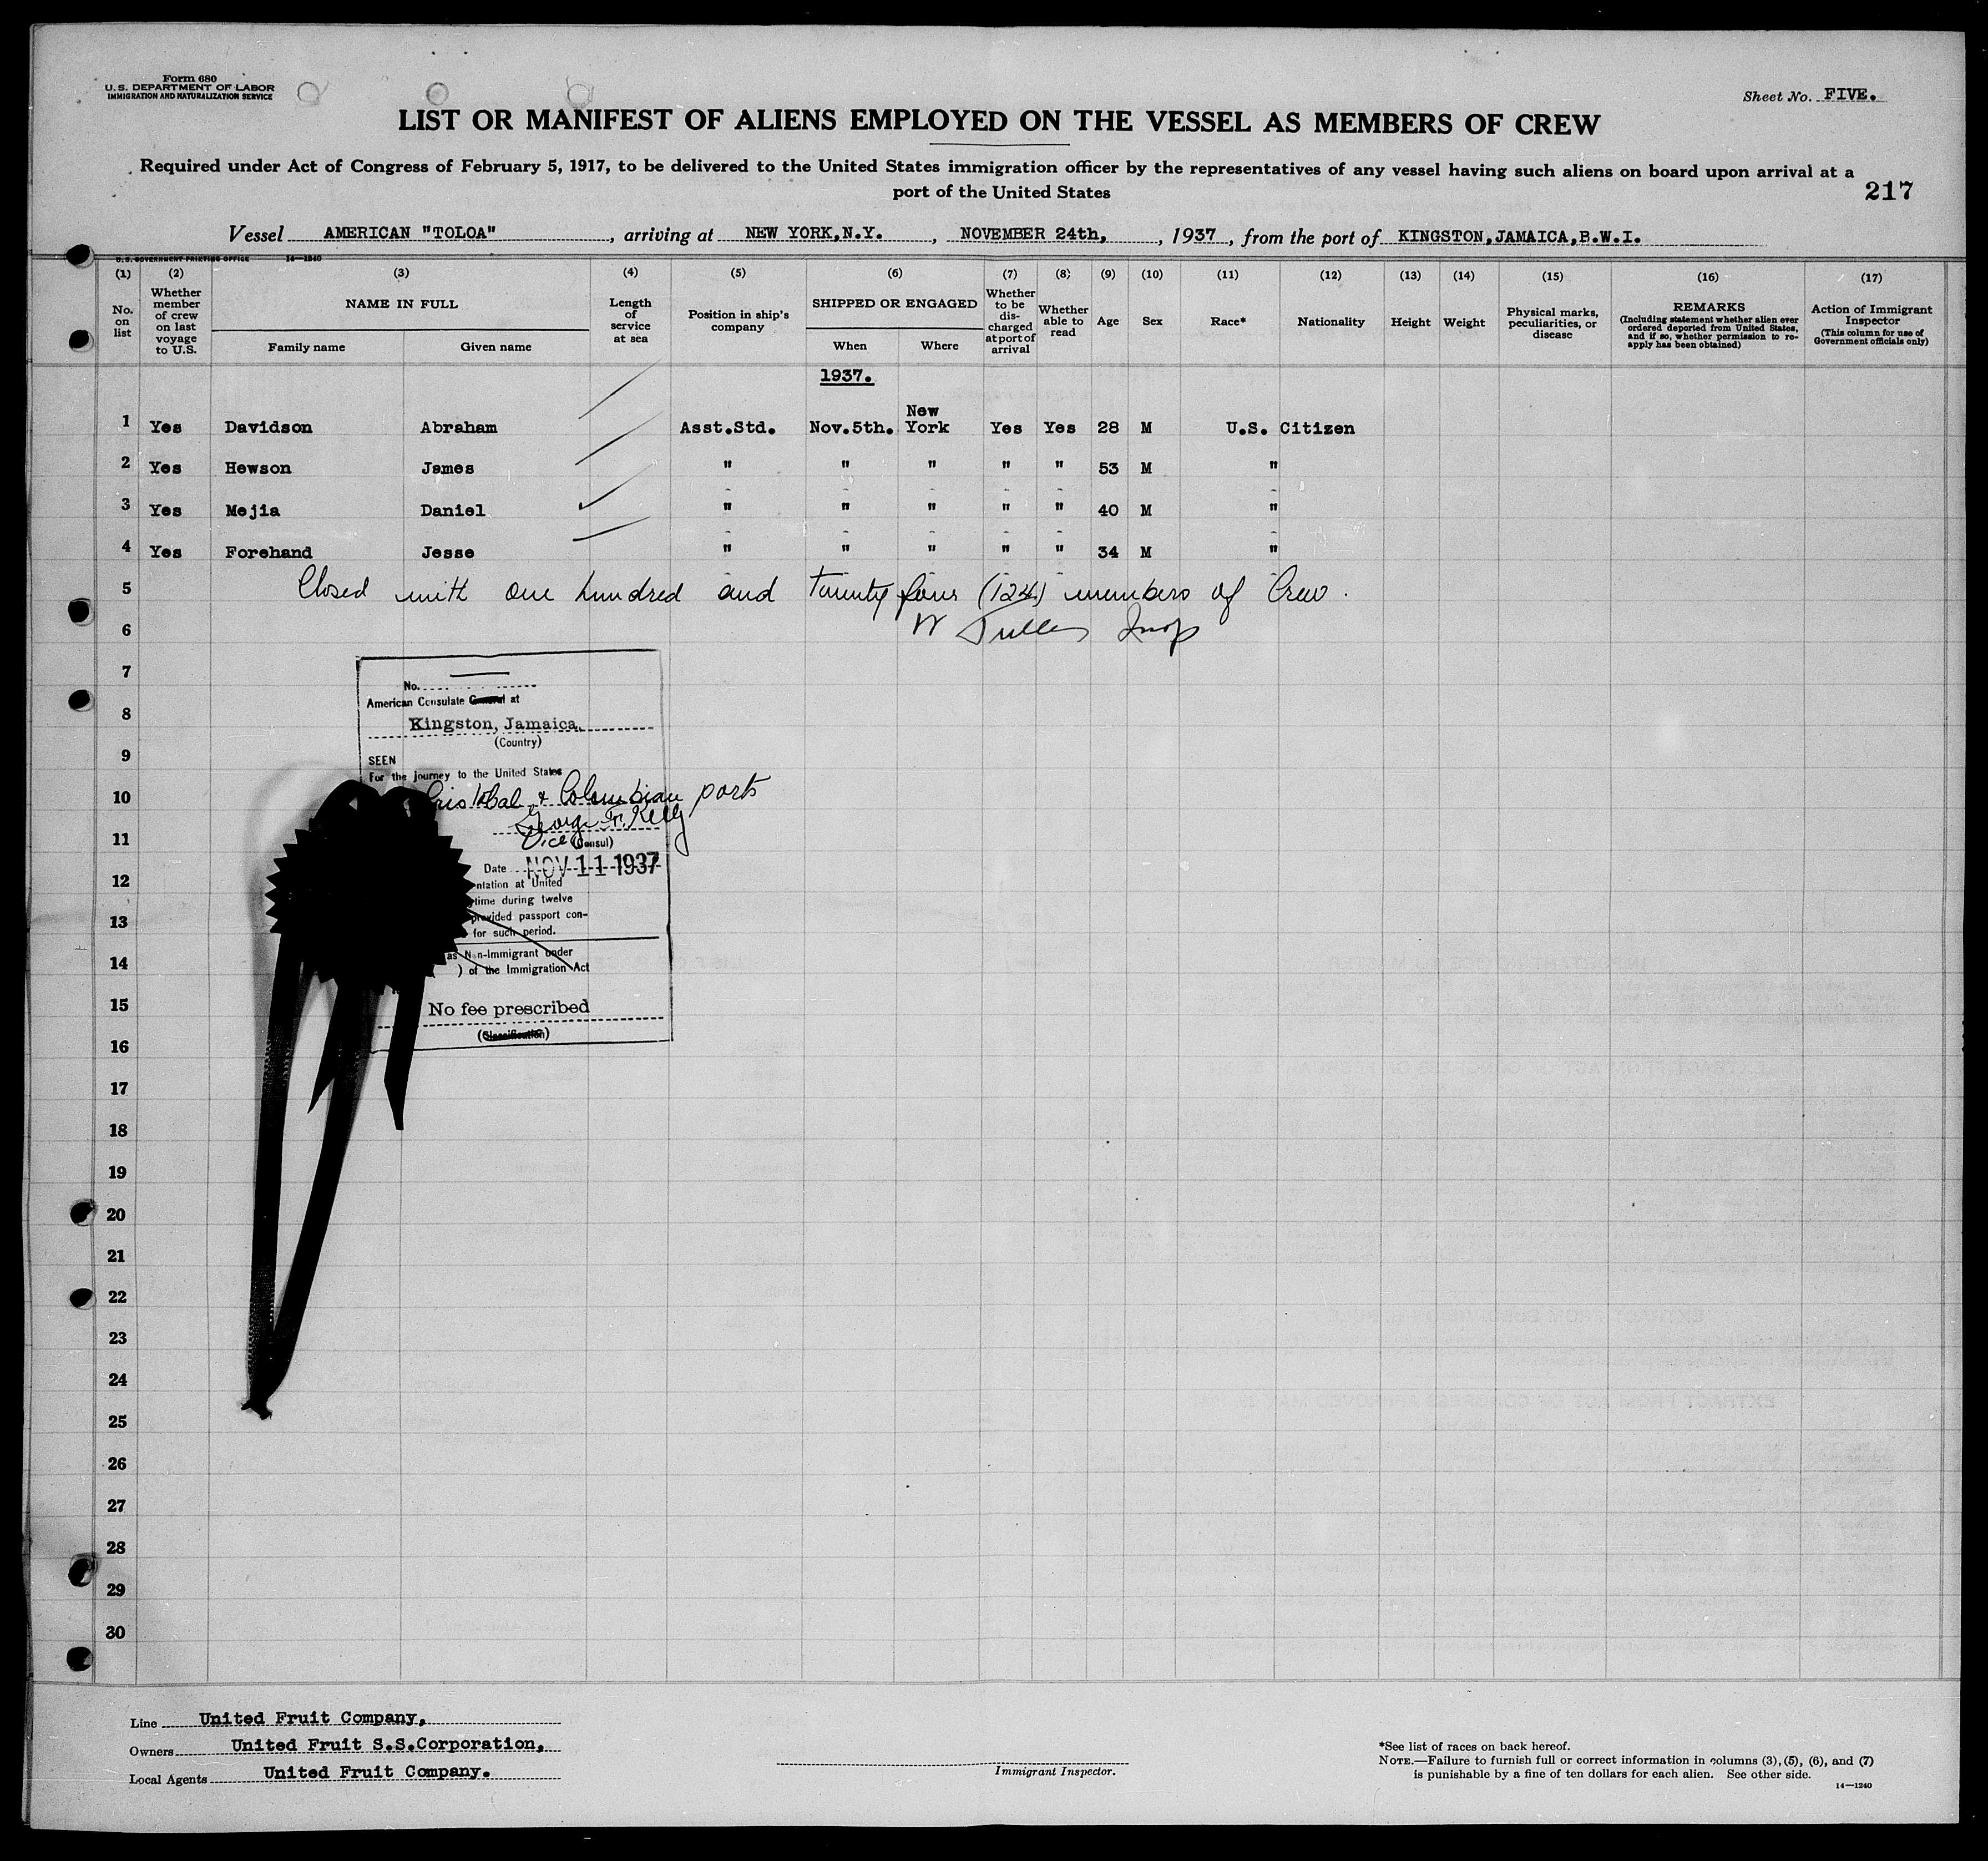 Form 680
U. S. DEPARTMENT OF LABOR
IMMIGRATION AND NATURALIZATION SERVICE
Sheet No. FIVE.
LIST OR MANIFEST OF ALIENS EMPLOYED ON THE VESSEL AS MEMBERS OF CREW
Required under Act of Congress of February 5, 1917, to be delivered to the United States immigration officer by the representatives of any vessel having such aliens on board upon arrival at a
port of the United States
217
Vessel AMERICAN "TOLOA", arriving at NEW YORK,N.Y., NOVEMBER 24th, , 1937, from the port of KINGSTON,JAMAICA,B.W.I.
U. S. GOVERNMENT PRINTING OFFICE 14—1240
(1) (2) (3) (4) (5) (6) (7) (8) (9) (10) (11) (12) (13) (14) (15) (16) (17)
No. on list
Whether member of crew on last voyage to U.S.
NAME IN FULL
Family name Given name
Length of service at sea
Position in ship's company
SHIPPED OR ENGAGED
When Where
Whether to be discharged at port of arrival
Whether able to read
Age
Sex
Race*
Nationality
Height
Weight
Physical marks, peculiarities, or disease
REMARKS
(Including statement whether alien ever ordered deported from United States, and if so, whether permission to reapply has been obtained)
Action of Immigrant Inspector
(This column for use of Government officials only)
1937.
1 Yes Davidson Abraham Asst.Std. Nov.5th. New York Yes Yes 28 M U.S. Citizen
2 Yes Hewson James " " " " " 53 M "
3 Yes Mejia Daniel " " " " " 40 M "
4 Yes Forehand Jesse " " " " " 34 M "
5 Closed with one hundred and twenty four (124) members of Crew.
6 W Insp
7
8
9
10
11
12
13
14
15
16
17
18
19
20
21
22
23
24
25
26
27
28
29
30
No.
American Consulate General at
Kingston, Jamaica.
(Country)
SEEN
For the journey to the United States
Cristobal & Columbian ports
George F. Kelly
Vice (Consul)
Date NOV 11 1937
ntation at United
time during twelve
provided passport con-
for such period.
as Non-Immigrant under
) of the Immigration Act
No fee prescribed
(Classification)
Line United Fruit Company,
Owners United Fruit S.S.Corporation,
Local Agents United Fruit Company.
Immigrant Inspector.
*See list of races on back hereof.
NOTE.—Failure to furnish full or correct information in columns (3), (5), (6), and (7)
is punishable by a fine of ten dollars for each alien. See other side.
14—1240